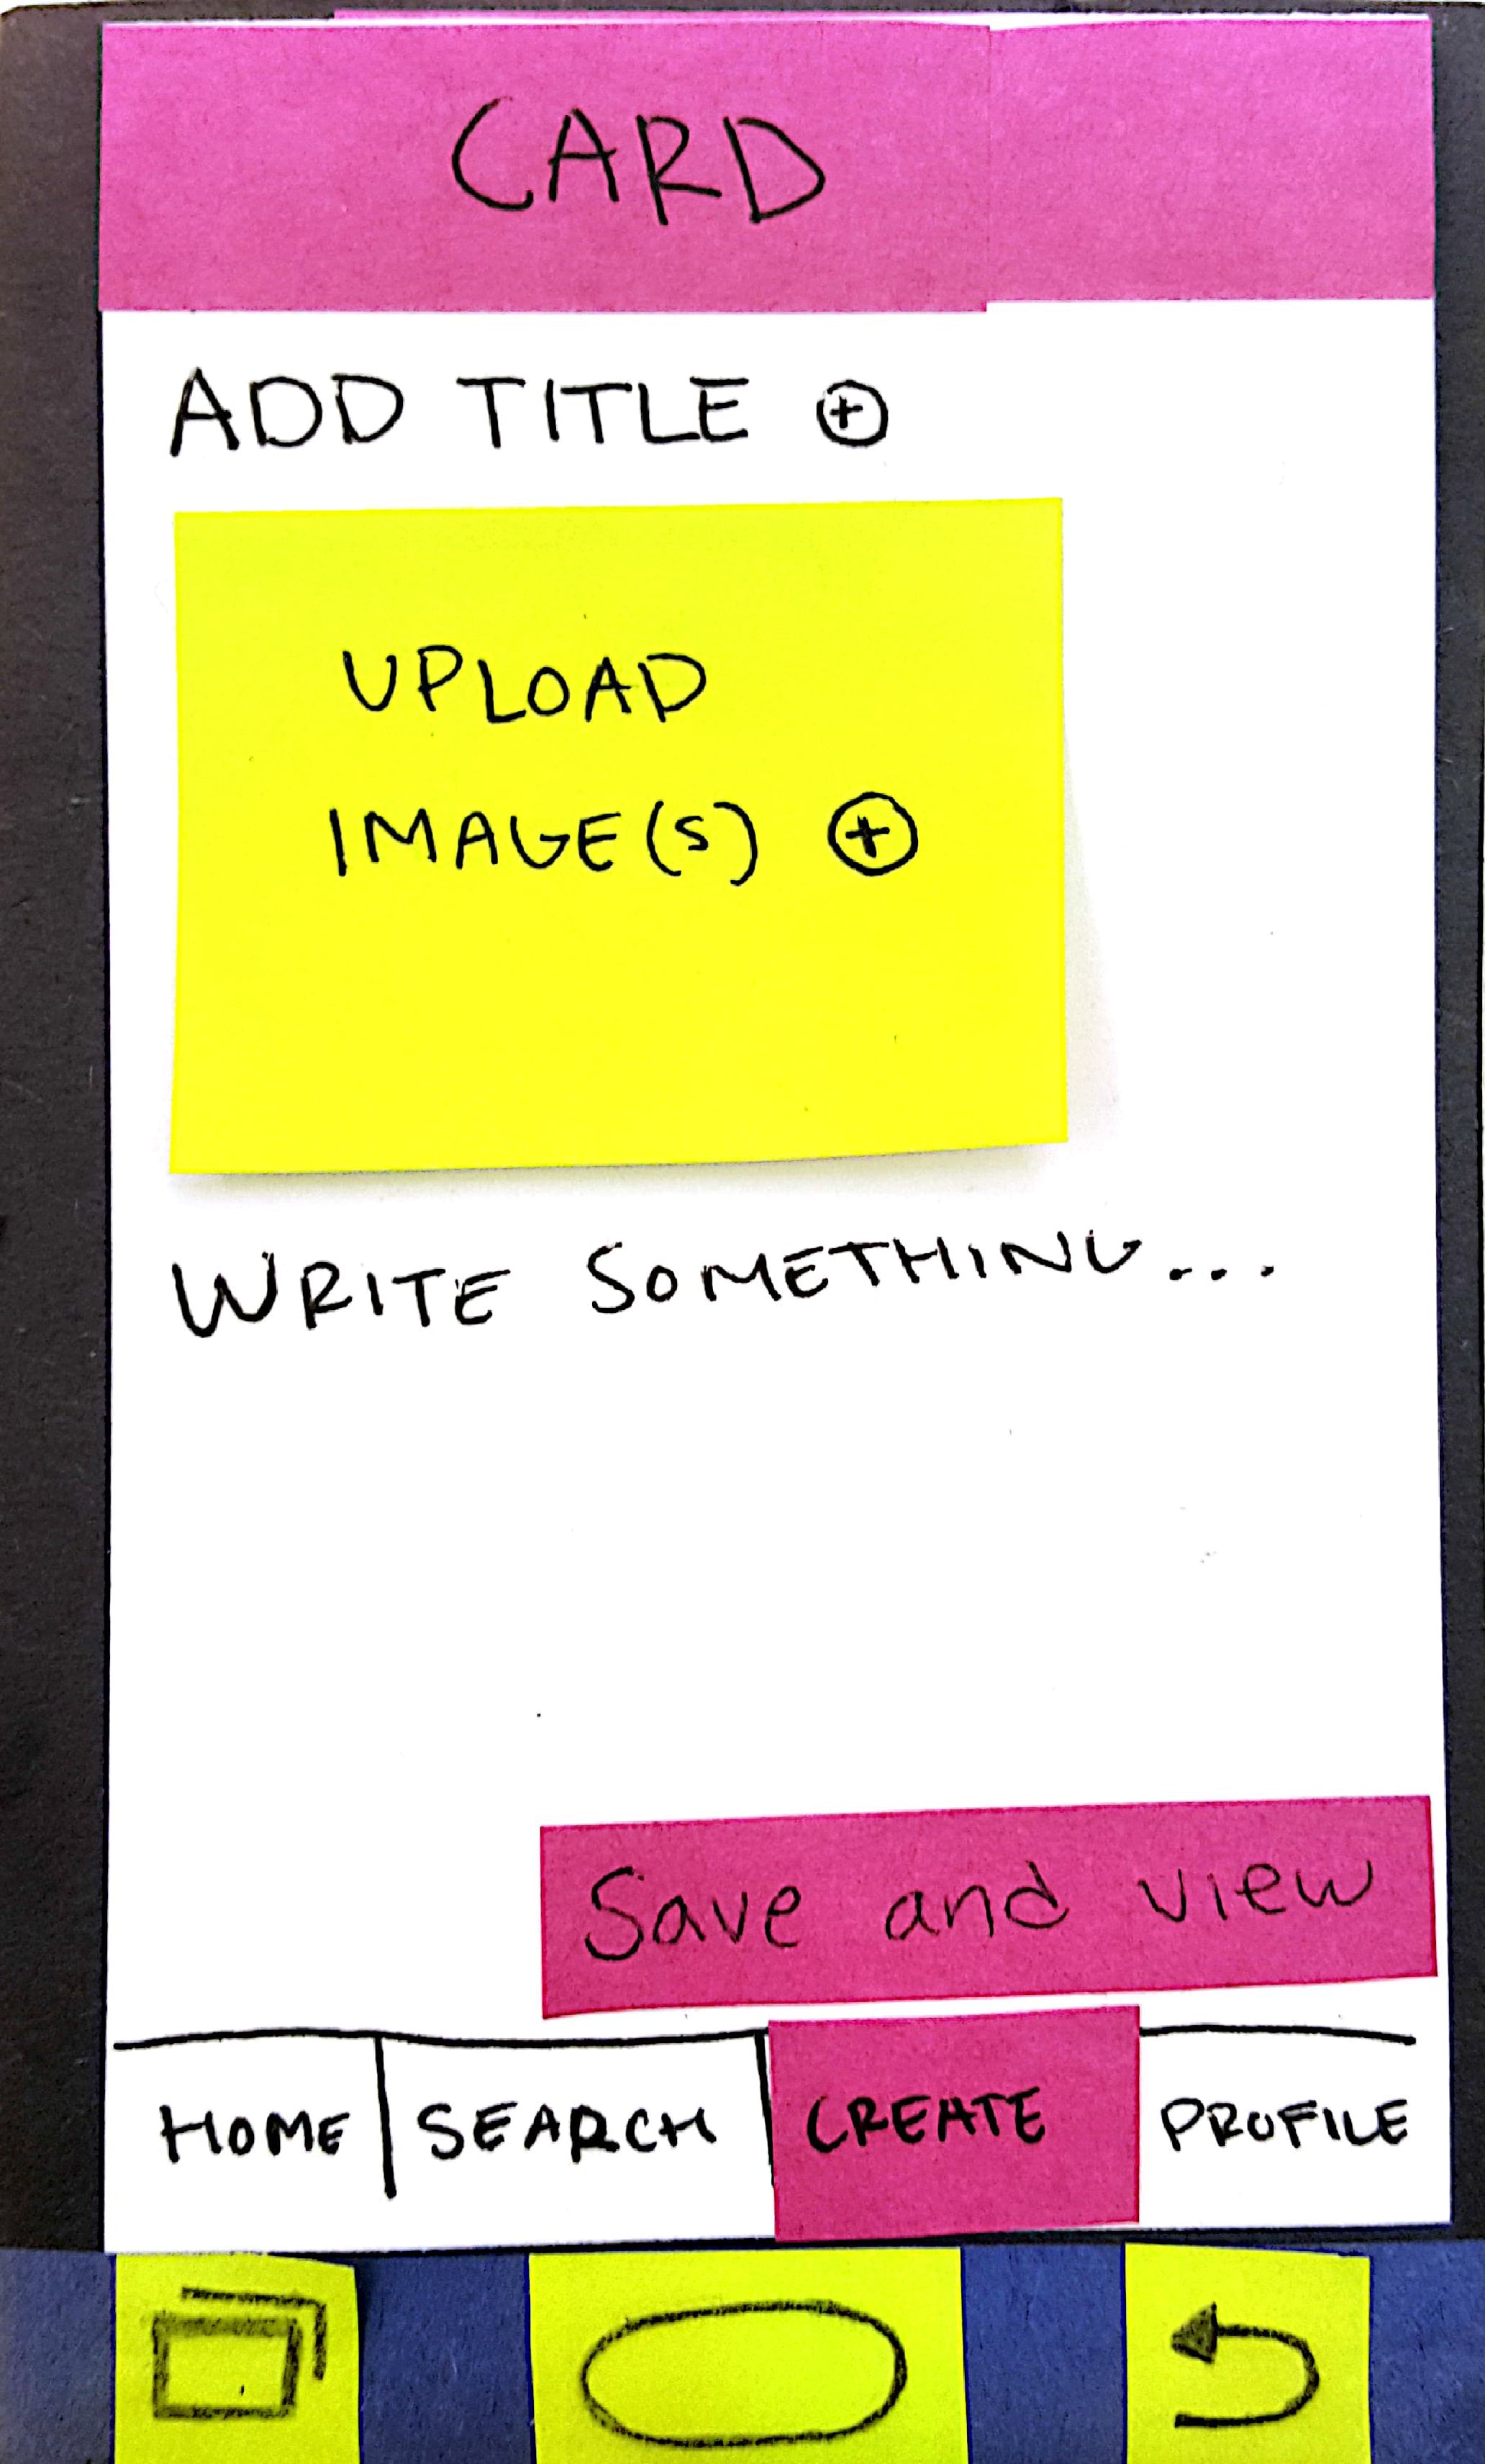 CARD
ADD TITLE +
UPLOAD
IMAGE(S) +
WRITE SOMETHING...
Save and view
HOME SEARCH CREATE PROFILE